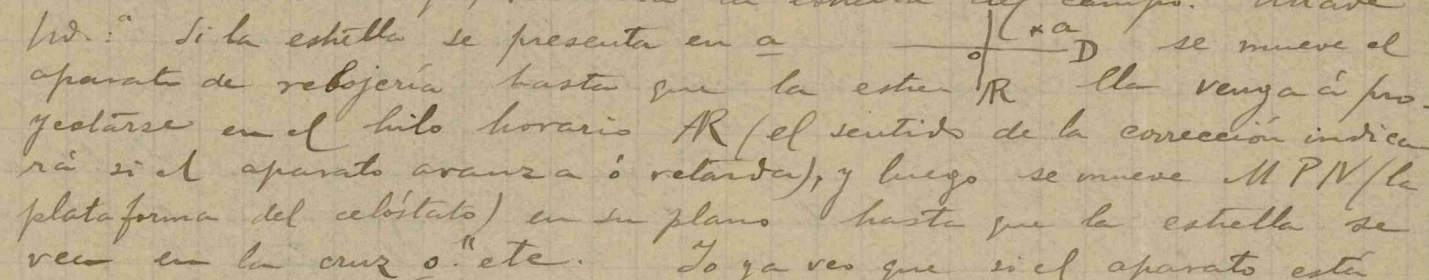 la estrella del campo. Añade
Vd.: " Si la estrella se presenta en a o x a D se mueve el
aparato de relojería hasta que la estre AR lla venga á pro-
yectarse en el hilo horario AR (el sentido de la corrección indica
rá si el aparato avanza ó retarda), y luego se mueve M P N (la
plataforma del celóstato) en su plano hasta que la estrella se
vea en la cruz o." etc. Yo ya veo que si el aparato está